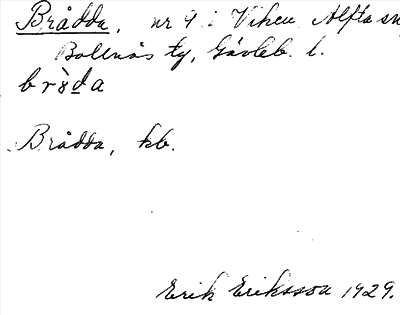 Brådda, nr 4 i Viken Alfta sn
Bollnäs tg, Gävleb. l.
brɔ̀da
Brådda, kb.
Erik Eriksson 1929.